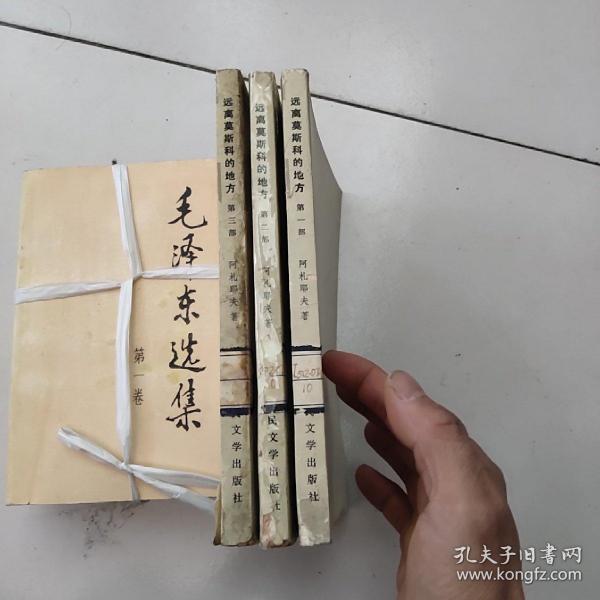 毛泽东选集
第一卷
远离莫斯科的地方 第三部 阿札耶夫著
文学出版社
远离莫斯科的地方 第二部 阿札耶夫著
民文学出版社
远离莫斯科的地方 第一部 阿札耶夫著
10
文学出版社
孔夫子旧书网
www.kongfz.com